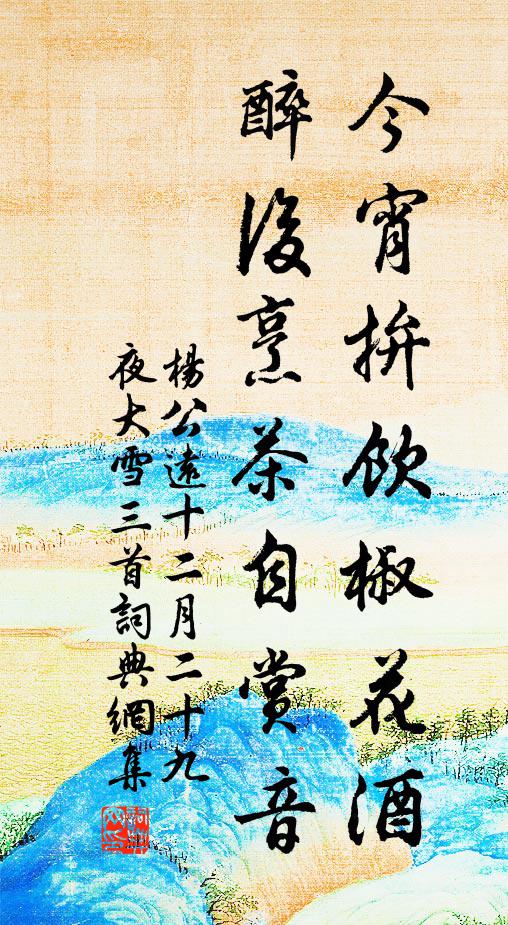 今宵拚飲椒花酒
醉後烹茶自賞音
楊公遠十二月二十九
夜大雪三首詞典網集